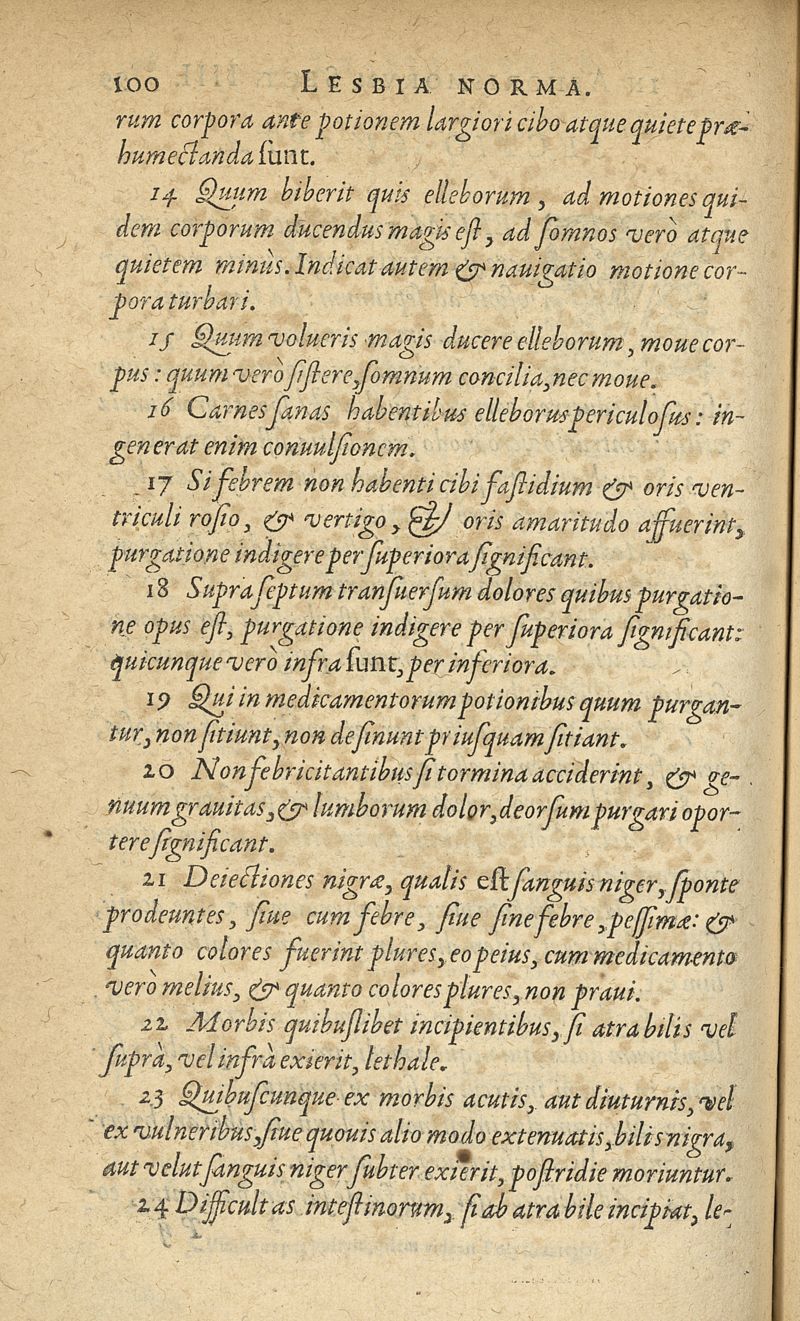 100 LESBIA NORMA.
rum corpora ante potionem largiori cibo atque quiete præ-
humectanda ſunt.
14 Quum biberit quis elleborum, ad motiones qui-
dem corporum ducendus magis eſt, ad ſomnos verò atque
quietem minùs. Indicat autem & nauigatio motione cor-
pora turbari.
15 Quum volueris magis ducere elleborum, moue cor-
pus: quum verò ſiſtere, ſomnum concilia, nec moue.
16 Carnes ſanas habentibus elleborus periculoſus: in-
generat enim conuulſionem.
17 Si febrem non habenti cibi faſtidium & oris ven-
triculi roſio, & vertigo, & oris amaritudo affuerint,
purgatione indigere per ſuperiora ſignificant.
18 Supra ſeptum tranſuerſum dolores quibus purgatio-
ne opus eſt, purgatione indigere per ſuperiora ſignificant:
quicunque verò infra ſunt, per inferiora.
19 Qui in medicamentorum potionibus quum purgan-
tur, non ſitiunt, non deſinunt priuſquam ſitiant.
20 Non febricitantibus ſi tormina acciderint, & ge-
nuum grauitas, & lumborum dolor, deorſum purgari opor-
tere ſignificant.
21 Deiectiones nigræ, qualis eſt ſanguis niger, ſponte
prodeuntes, ſiue cum febre, ſiue ſine febre, peſſimæ: &
quanto colores fuerint plures, eo peius, cum medicamento
verò melius, & quanto colores plures, non praui.
22 Morbis quibuſlibet incipientibus, ſi atra bilis vel
ſuprà, vel infrà exierit, lethale.
23 Quibuſcunque ex morbis acutis, aut diuturnis, vel
ex vulneribus, ſiue quouis alio modo extenuatis, bilis nigra,
aut velut ſanguis niger ſubter exierit, poſtridie moriuntur.
24 Difficultas inteſtinorum, ſi ab atra bile incipiat, le-